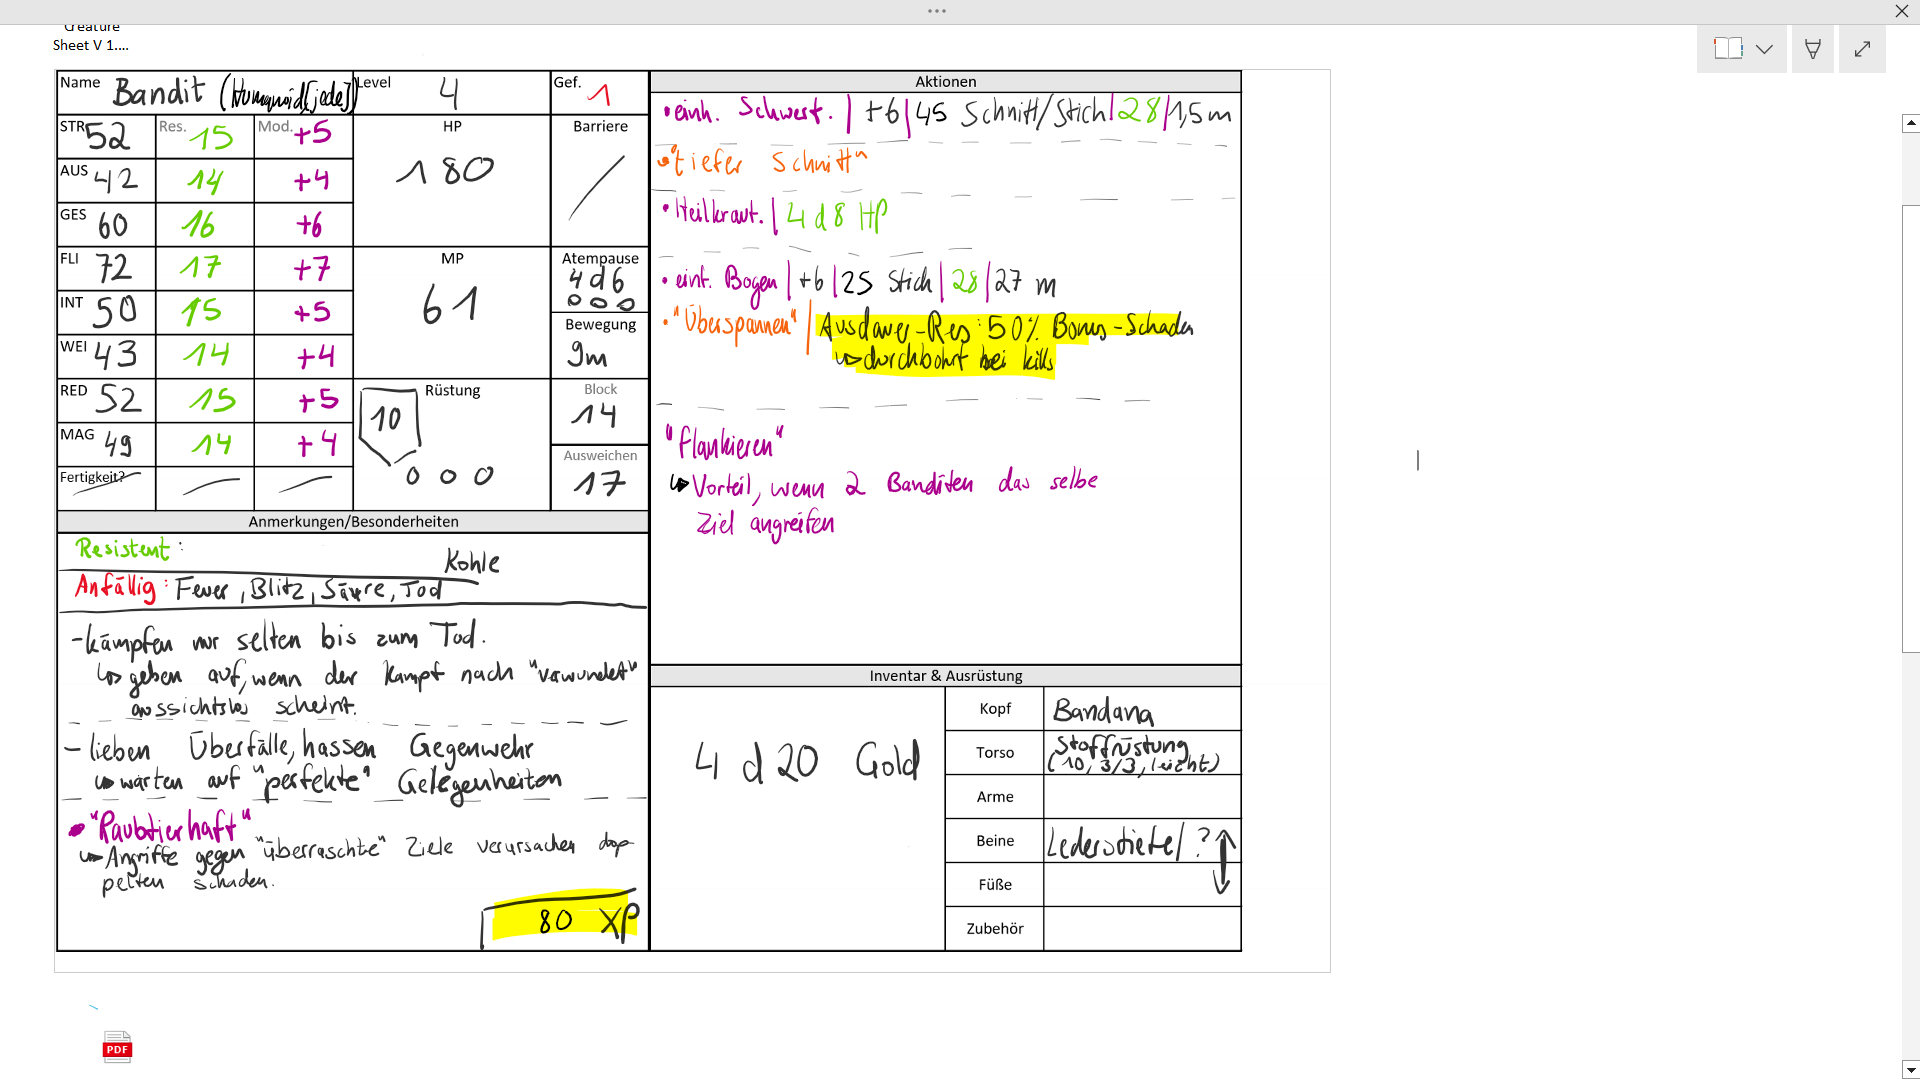 Creature
Sheet V 1....
Name Bandit (Humanoid[jede]) Level 4 Gef. 1
STR 52 Res. 15 Mod. +5
AUS 42 14 +4
GES 60 16 +6
FLI 72 17 +7
INT 50 15 +5
WEI 43 14 +4
RED 52 15 +5
MAG 49 14 +4
Fertigkeit?
HP
180
Barriere
MP
61
Atempause
4d6
Bewegung
9m
Rüstung
10
Block
14
Ausweichen
17
Anmerkungen/Besonderheiten
Resistent:
Kohle
Anfällig: Feuer, Blitz, Säure, Tod
-kämpfen nur selten bis zum Tod.
↳ geben auf, wenn der Kampf nach "verwundet"
aussichtslos scheint.
- lieben Überfälle, hassen Gegenwehr
↳ warten auf "perfekte" Gelegenheiten
• "Raubtierhaft"
↳ Angriffe gegen "überraschte" Ziele verursachen dop
pelten schaden.
80 XP
Aktionen
• einh. Schwert. | +6 | 45 Schnitt/Stich | 28 | 1,5 m
"tiefer Schnitt"
• Heilkraut. | 4d8 HP
• einf. Bogen | +6 | 25 Stich | 28 | 27 m
• "Überspannen" | Ausdauer-Res: 50% Bonus-Schaden
↳ durchbohrt bei kills
"Flankieren"
↳ Vorteil, wenn 2 Banditen das selbe
Ziel angreifen
Inventar & Ausrüstung
4 d 20 Gold
Kopf Bandana
Torso Stoffrüstung
(10, 3/3, leicht)
Arme
Beine Lederstiefel ?
Füße
Zubehör
PDF